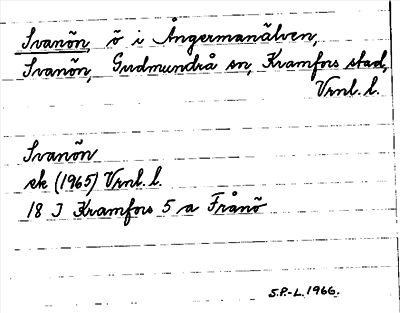 Svanön, ö i Ångermanälven,
Svanön, Gudmundrå sn, Kramfors stad,
Vrnl. l.
Svanön
ek (1965) Vrnl. l.
18 J Kramfors 5 a Frånö
S.P.-L. 1966.